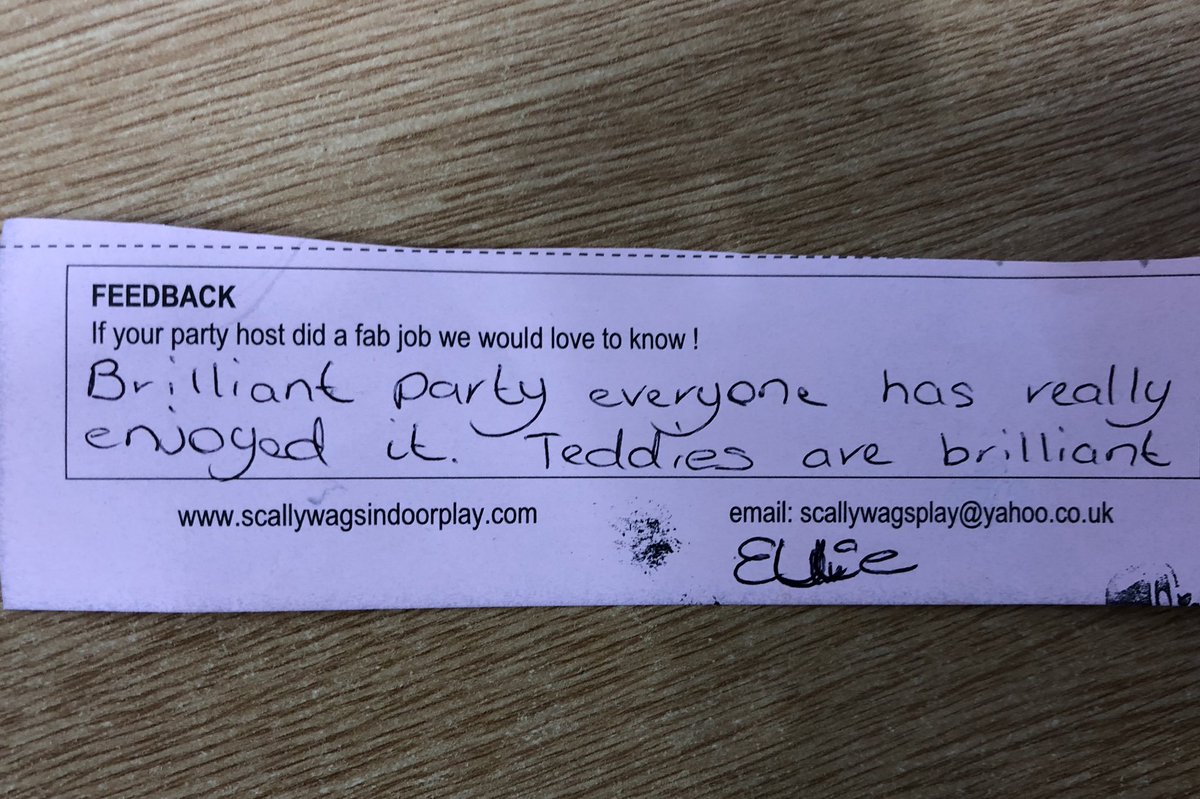 FEEDBACK
If your party host did a fab job we would love to know !
Brilliant party everyone has really
enjoyed it. Teddies are brilliant
www.scallywagsindoorplay.com
email: scallywagsplay@yahoo.co.uk
Ellie